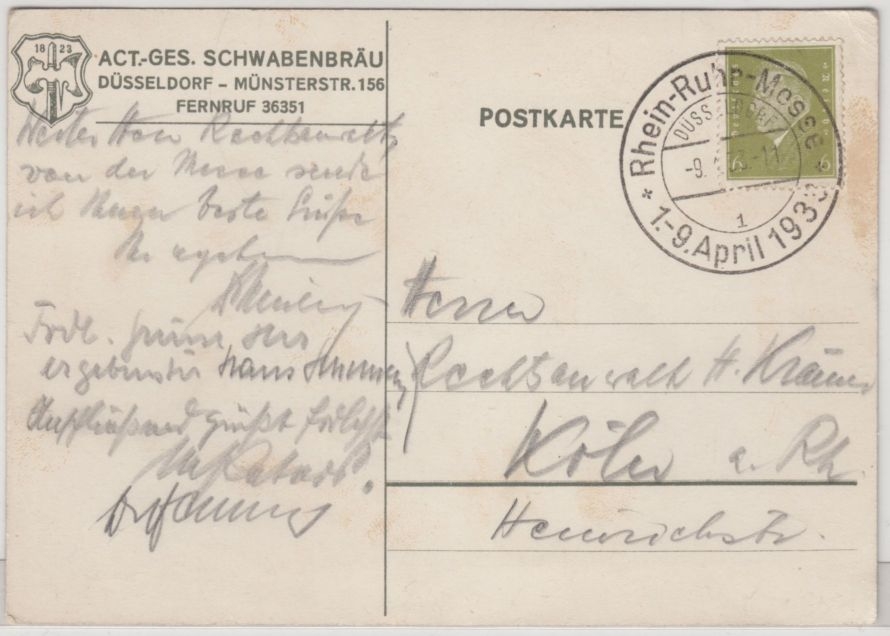 18 23
ACT.-GES. SCHWABENBRÄU
DÜSSELDORF – MÜNSTERSTR. 156
FERNRUF 36351
POSTKARTE
Rhein-Ruhr-Messe
DÜSSELDORF
-9. -11
1
* 1.-9. April 1933 *
6 6
Werter Herr Rechtsanwalt,
von der Messe sende
ich Ihnen beste Grüße
Ihr
Frdl. Grüße Ihr
ergebenster Hans
grüßt
Herrn
Rechtsanwalt H. Krämer
Köln a. Rh.
Heinrichstr.